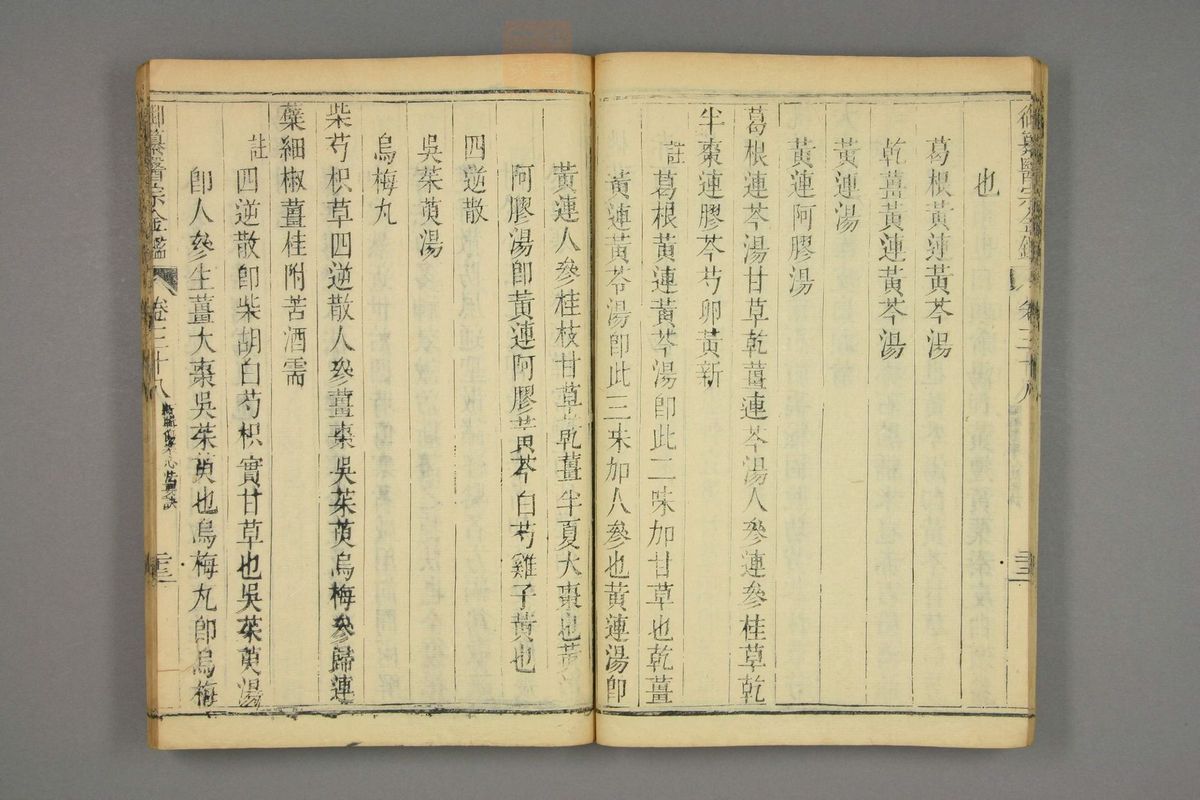 也
葛根黃連黃芩湯
乾薑黃連黃芩湯
黃連湯
黃連阿膠湯
葛根連芩湯甘草乾薑連芩湯人參連參桂草乾
半棗連膠芩芍卵黃新
註葛根黃連黃芩湯卽此二味加甘草也乾薑
黃連黃芩湯卽此三味加人參也黃連湯卽
黃連人參桂枝甘草乾薑半夏大棗也黃連
阿膠湯卽黃連阿膠黃芩白芍雞子黃也
四逆散
吳茱萸湯
烏梅丸
柴芍枳草四逆散人參薑棗吳茱萸烏梅參歸連
蘗細椒薑桂附苦酒需
註四逆散卽柴胡白芍枳實甘草也吳茱萸湯
卽人參生薑大棗吳茱萸也烏梅丸卽烏梅
御纂醫宗金鑑
卷三十八
三三